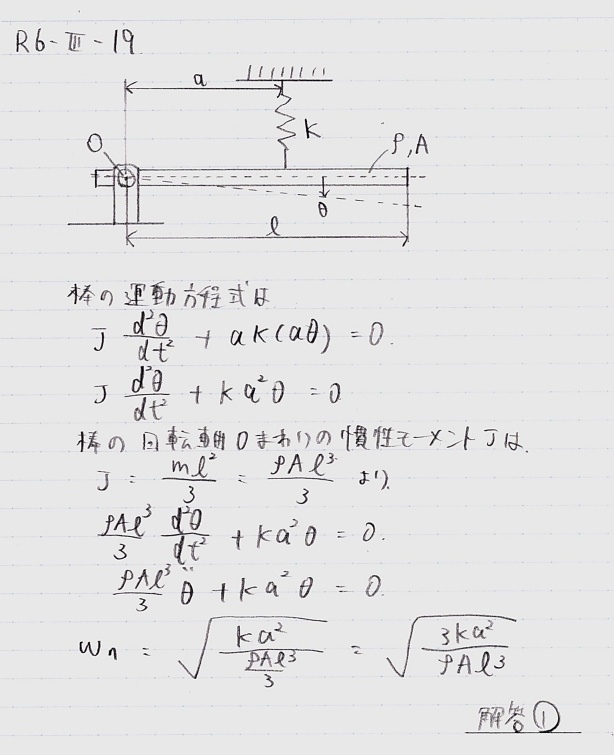 R6-Ⅲ-19
a
k
O
ρ, A
θ
l
棒の運動方程式は
J d²θ/dt² + ak(aθ) = 0.
J d²θ/dt² + ka²θ = 0
棒の回転軸Oまわりの慣性モーメントJは.
J = ml²/3 = ρAl³/3 より
ρAl³/3 d²θ/dt² + ka²θ = 0.
ρAl³/3 θ̈ + ka²θ = 0.
ωn = √(ka²/(ρAl³/3)) = √(3ka²/ρAl³)
解答①